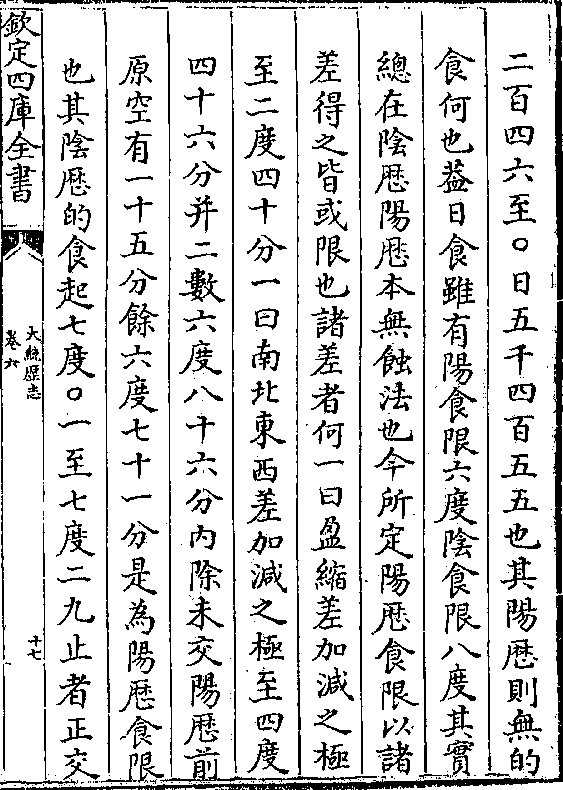 二百四六至〇日五千四百五五也其陽厯則無的
食何也葢日食雖有陽食限六度陰食限八度其實
總在陰厯陽厯本無蝕法也今所定陽厯食限以諸
差得之皆或限也諸差者何一曰盈縮差加減之極
至二度四十分一曰南北東西差加減之極至四度
四十六分并二數六度八十六分内除未交陽厯前
原空有一十五分餘六度七十一分是為陽厯食限
也其陰厯的食起七度〇一至七度二九止者正交
欽定四庫全書
大統厯志
卷六
十七